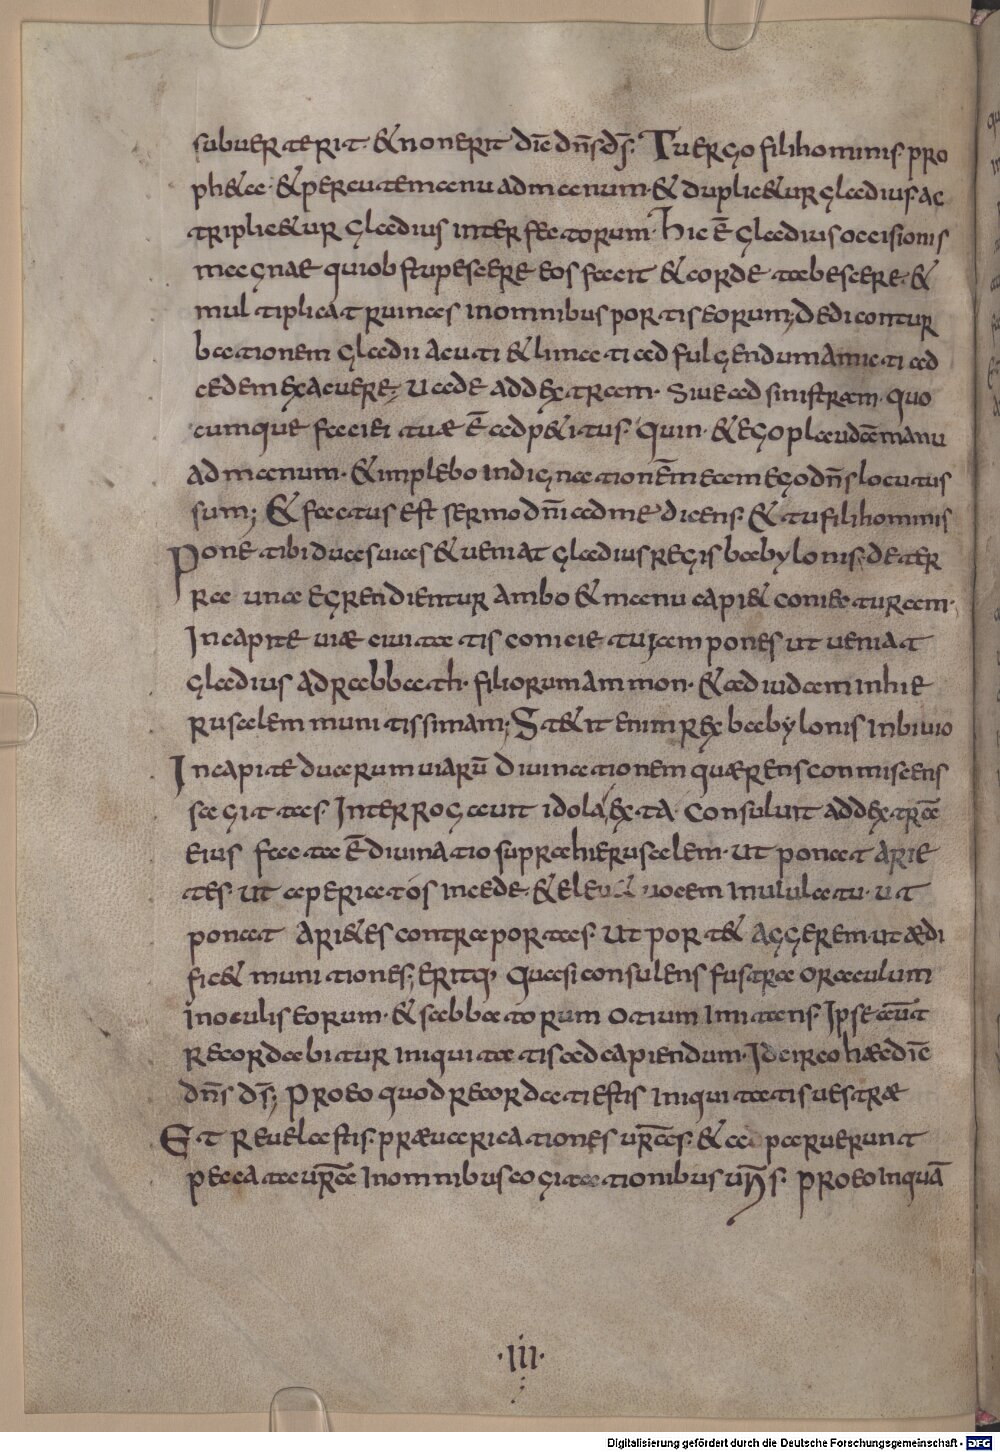 subuerterit & non erit dič dn̄s ds̄. Tu ergo fili hominis pro
ph&a & percute manu ad manum & duplic&ur gladius ac
triplic&ur gladius interfectorum. hic ē gladius occisionis
magnae qui obstupescere eos facit & corde tabescere &
multiplicat ruinas in omnibus portis eorum; dedi contur
bationem gladii acuti & limati ad fulgendum amicti ad
cedem exacuere; uade ad dextram. siue ad sinistram. quo
cumque faciei tuæ ē ad p&itus. quin & ego plaudā manu
ad manum. & implebo indignationē meam ego dn̄s locutus
sum; & factus est sermo dn̄i ad me dicens. & tu fili hominis
Pone tibi duas uias & ueniat gladius regis babylonis. de ter
ra una egrendientur ambo & manu capi& coniecturam.
In capite uiæ ciuitatis coniecturam pones ut ueniat
gladius ad rabbath. filiorum ammon. & ad iudam in hie
rusalem munitissimam; St&it enim rex babylonis in biuio
In capite ducerum uiarū diuinationem quærens conmiscens
sagittas. Interrogauit idola, exta consuluit ad dextrā
eius facta ē diuinatio supra hierusalem. ut ponat arie
tes. ut aperiat os in cede. & eleu& uocem in ululatu. ut
ponat ari&es contra portas. ut port& aggerem. ut ædi
fic& munitiones; eritq. quasi consulens fustra oraculum
in oculis eorum. & sabbatorum otium imitans. Ipse aut̄
recordabitur iniquitatis ad capiendum. Idcirco hæc dič
dn̄s ds̄; Proeo quod recordati estis iniquitatis uestræ
Et reuelastis. præuaricationes urās. & apparuerunt
peccata urā in omnibus cogitationibus urīs. proeo inquā
·III·
Digitalisierung gefördert durch die Deutsche Forschungsgemeinschaft - DFG